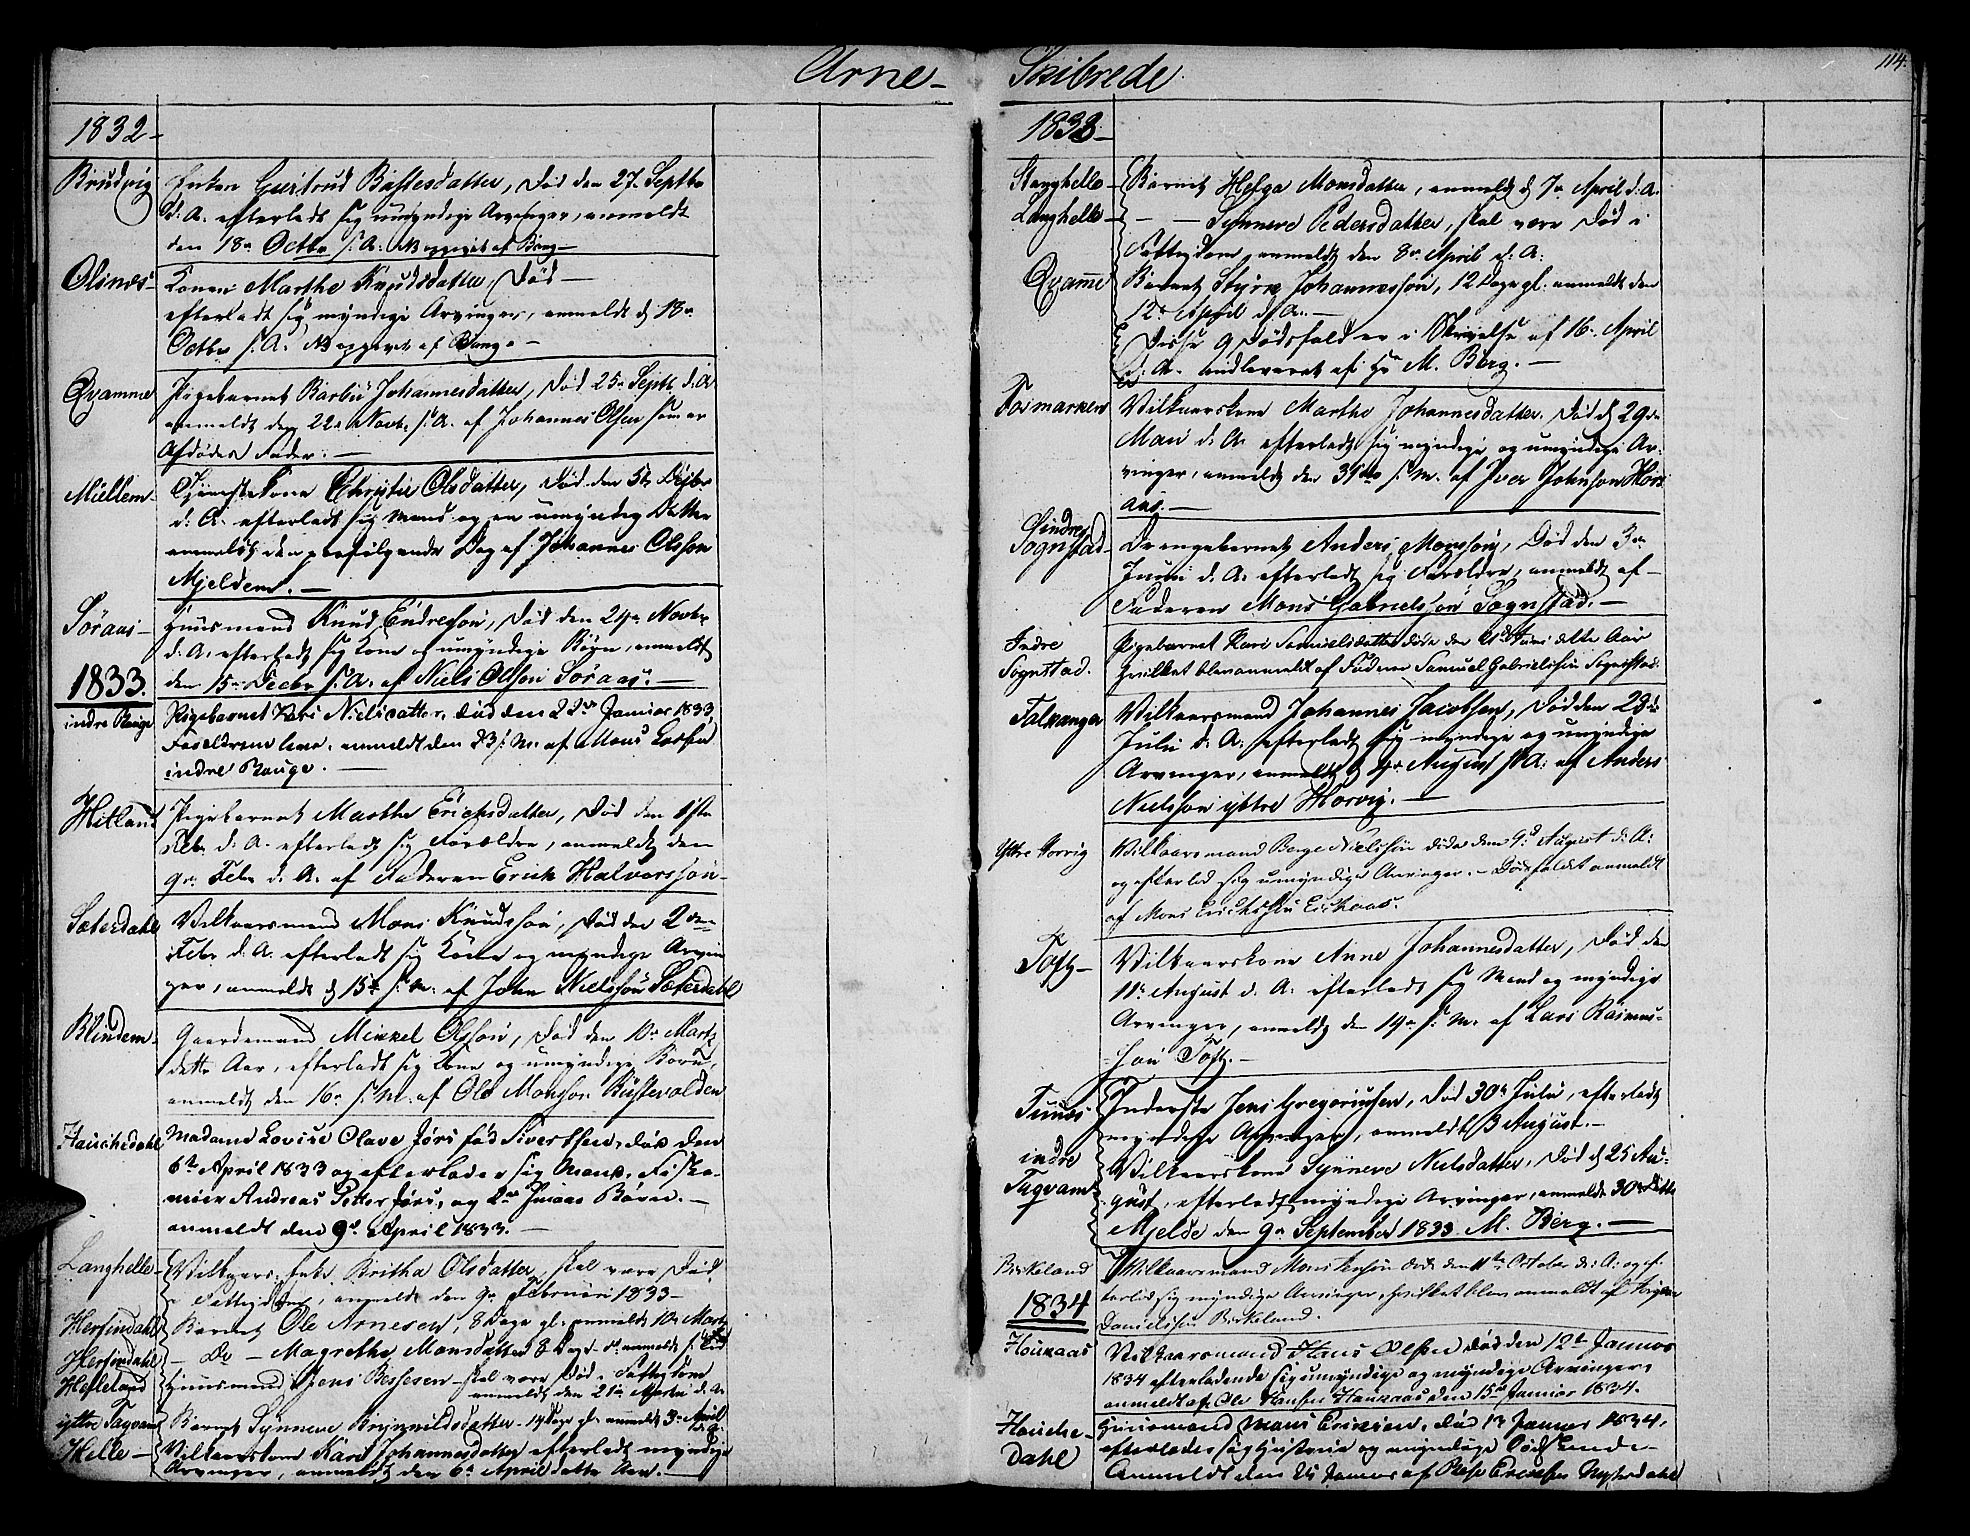 Arne-
1832-
Brudvig Enken Guertrud Bastesdatter, død den 27. Septbr
d: A. efterladt sig umyndige Arvinger, anmeldt
den 18n Octbr s. A: opgivet af Berg -
Olsnes- Konen Marthe Knudsdatter, død -
efterladt sig myndige Arvinger, anmeldt d 18n
Octbr s. A. opgivet af Berg. -
Qvamme Pigebarnet Barbu Johannesdatter, død 25n Septb. d: A:
anmeldt den 22n Novbr. s. A. af Johannes Olsen som er
Afdødes Fader. -
Miellem- Tjenstekone Christie Olsdatter, død den 5te Dejbr
d: A. efterladt sig Mand og en umyndig Datter
anmeldt den paafølgende Dag af Johannes Olsson
Mjeldem. -
Söraas- Huusmand Knud Endreson, død den 24n Novbr
d: A. efterladt sig Kone og umyndige Børn, anmeldt
den 15n Decbr s. A. af Niels Olsson Söraas. -
1833.
indre Bauge Pigebarnet Kari Nielsdatter, død den 22de Januar 1833,
Forældrene leve. anmeldt den 23 s. M. af Mons Larsen
indre Bauge. -
Hitland Pigebarnet Marthe Erichsdatter, død den 1ste
Febr. d: A. efterladt sig Forældre, anmeldt den
9n Febr d: A. af Faderen Erich Halversson-
Sæterdahl Vilkaarsmand Mons Knudsson, død den 2den
Febr d: A. efterladt sig Kone og myndige Arvin
ger, anmeldt d 15de s. M. af John Nielsson Sæterdahl
Blindem- Gaardemand Mikkel Olsson, død den 10n Martz
dette Aar, efterladt sig Kone og umyndige Børn,
anmeldt den 16n s. M. af Ole Monson Bustevolden
Hauchedahl Madame Lovise Olave Jørs fød Sivertsen, død den
6te April 1833 og efterlader sig Mand,
Andreas Petter Jørs, og 2de Børn. -
anmeldt den 9de April 1833. -
Langhelle- Vilkaars Enke Britha Olsdatter, skal være død
i Fattigdom, anmeldt den 9n Februari 1833-
Herfindahl Barnet Ole Arnesen, 8 Dage gl. anmeldt 10n Martz
Herfindahl - Do - Magrethe Monsdatter 8 Dage
Hesleland Huusmand Jens Bessesen - skal være død i Fattigdom
anmeldt den 21n Martz d: A.
yttre Tagvam Barnet Synneve Brynnildsdatter - 14 Dage gl. anmeldt 3n April
Helle - Vilkaarskone Kari Johannesdatter efterladt myndige
Arvinger, anmeldt den 6n April dette Aar. -
Skibrede
114.
1833-
Stanghelle- Barnet Helga Monsdatter, anmeldt d 7n April d: A.
Langhelle- - - Synneve Pedersdatter, skal være død i
Fattigdom, anmeldt den 8n April d: A:
Qvamme Barnet Styrk Johannesson, 12 Dage gl. anmeldt den
12n April d: A. -
Disse 9 Dødsfald er i Skrivelse af 16n April
d: A. indleveret af Hr M. Berg. -
Fosmarken Vilkaarskone Marthe Johannesdatter, død d 29de
Mai d: A. efterladt sig myndige og umyndige Ar-
vinger, anmeldt den 31te s. M. af Iver Johnson Hors
aas. -
Indre
Sognstad- Drengebarnet Anders Monsson, død den 3n
Juni d: A. efterladt sig Forældre, anmeldt af -
Faderen Mons Gabrielsson Sognstad. -
Indre
Sognstad. Pigebarnet Kari Samuelsdatter døde den Juni dette Aar
hvilket blev anmeldt af Faderen Samuel Gabrielssøn Sognstad.
Falkanger Vilkaarsmand Johannes Jacobsen, død den 23de
Julii d: A. efterladt sig myndige og umyndige
Arvinger, anmeldt d August s. A. af Anders
Nielsson yttre Horvig. -
Yttre Horvig Vilkaarsmand Berge Nielssøn døde den 9d August d: A:
og efterlod sig umyndige Arvinger. - Dødsfaldet anmeldt
af Mons Erichssøn Eichaas.
Toft- Vilkaarskone Anne Johannesdatter, død den
11te August d: A. efterladt sig Mand og myndige
Arvinger, anmeldt den 19n s. M. af Lars Rasmus-
son Toft. -
Tunes Inderste Jens Gregoriusen, død 30n Julii, efterladt
myndige Arvinger, anmeldt 3 August. -
indre
Tagvam Vilkaarskone Synneve Nielsdatter, død d 25 Au-
gust, efterladt myndige Arvinger, anmeldt 30n dito
Mjelde den 9n September 1833 M. Berg. -
Birkeland Vilkaarsmand Mons døde den 11te October d: A: og ef-
terlod sig myndige Arvinger, hvilket blev anmeldt af
Danielssøn Birkeland.
1834
Houkaas Vilkaarsmand Hans Olsen død den 12te Januar
1834 efterladende sig umyndige og myndige Arvinger,
anmeldt af Ole Hansen Haukaas den 15de Januar 1834.
Hauche-
dahl Huusmand Mons Ericsen, død 13 Januar 1834.
efterlader sig Hustrue og myndige Livs
Anmeldt den 25 Januar af Ericksen